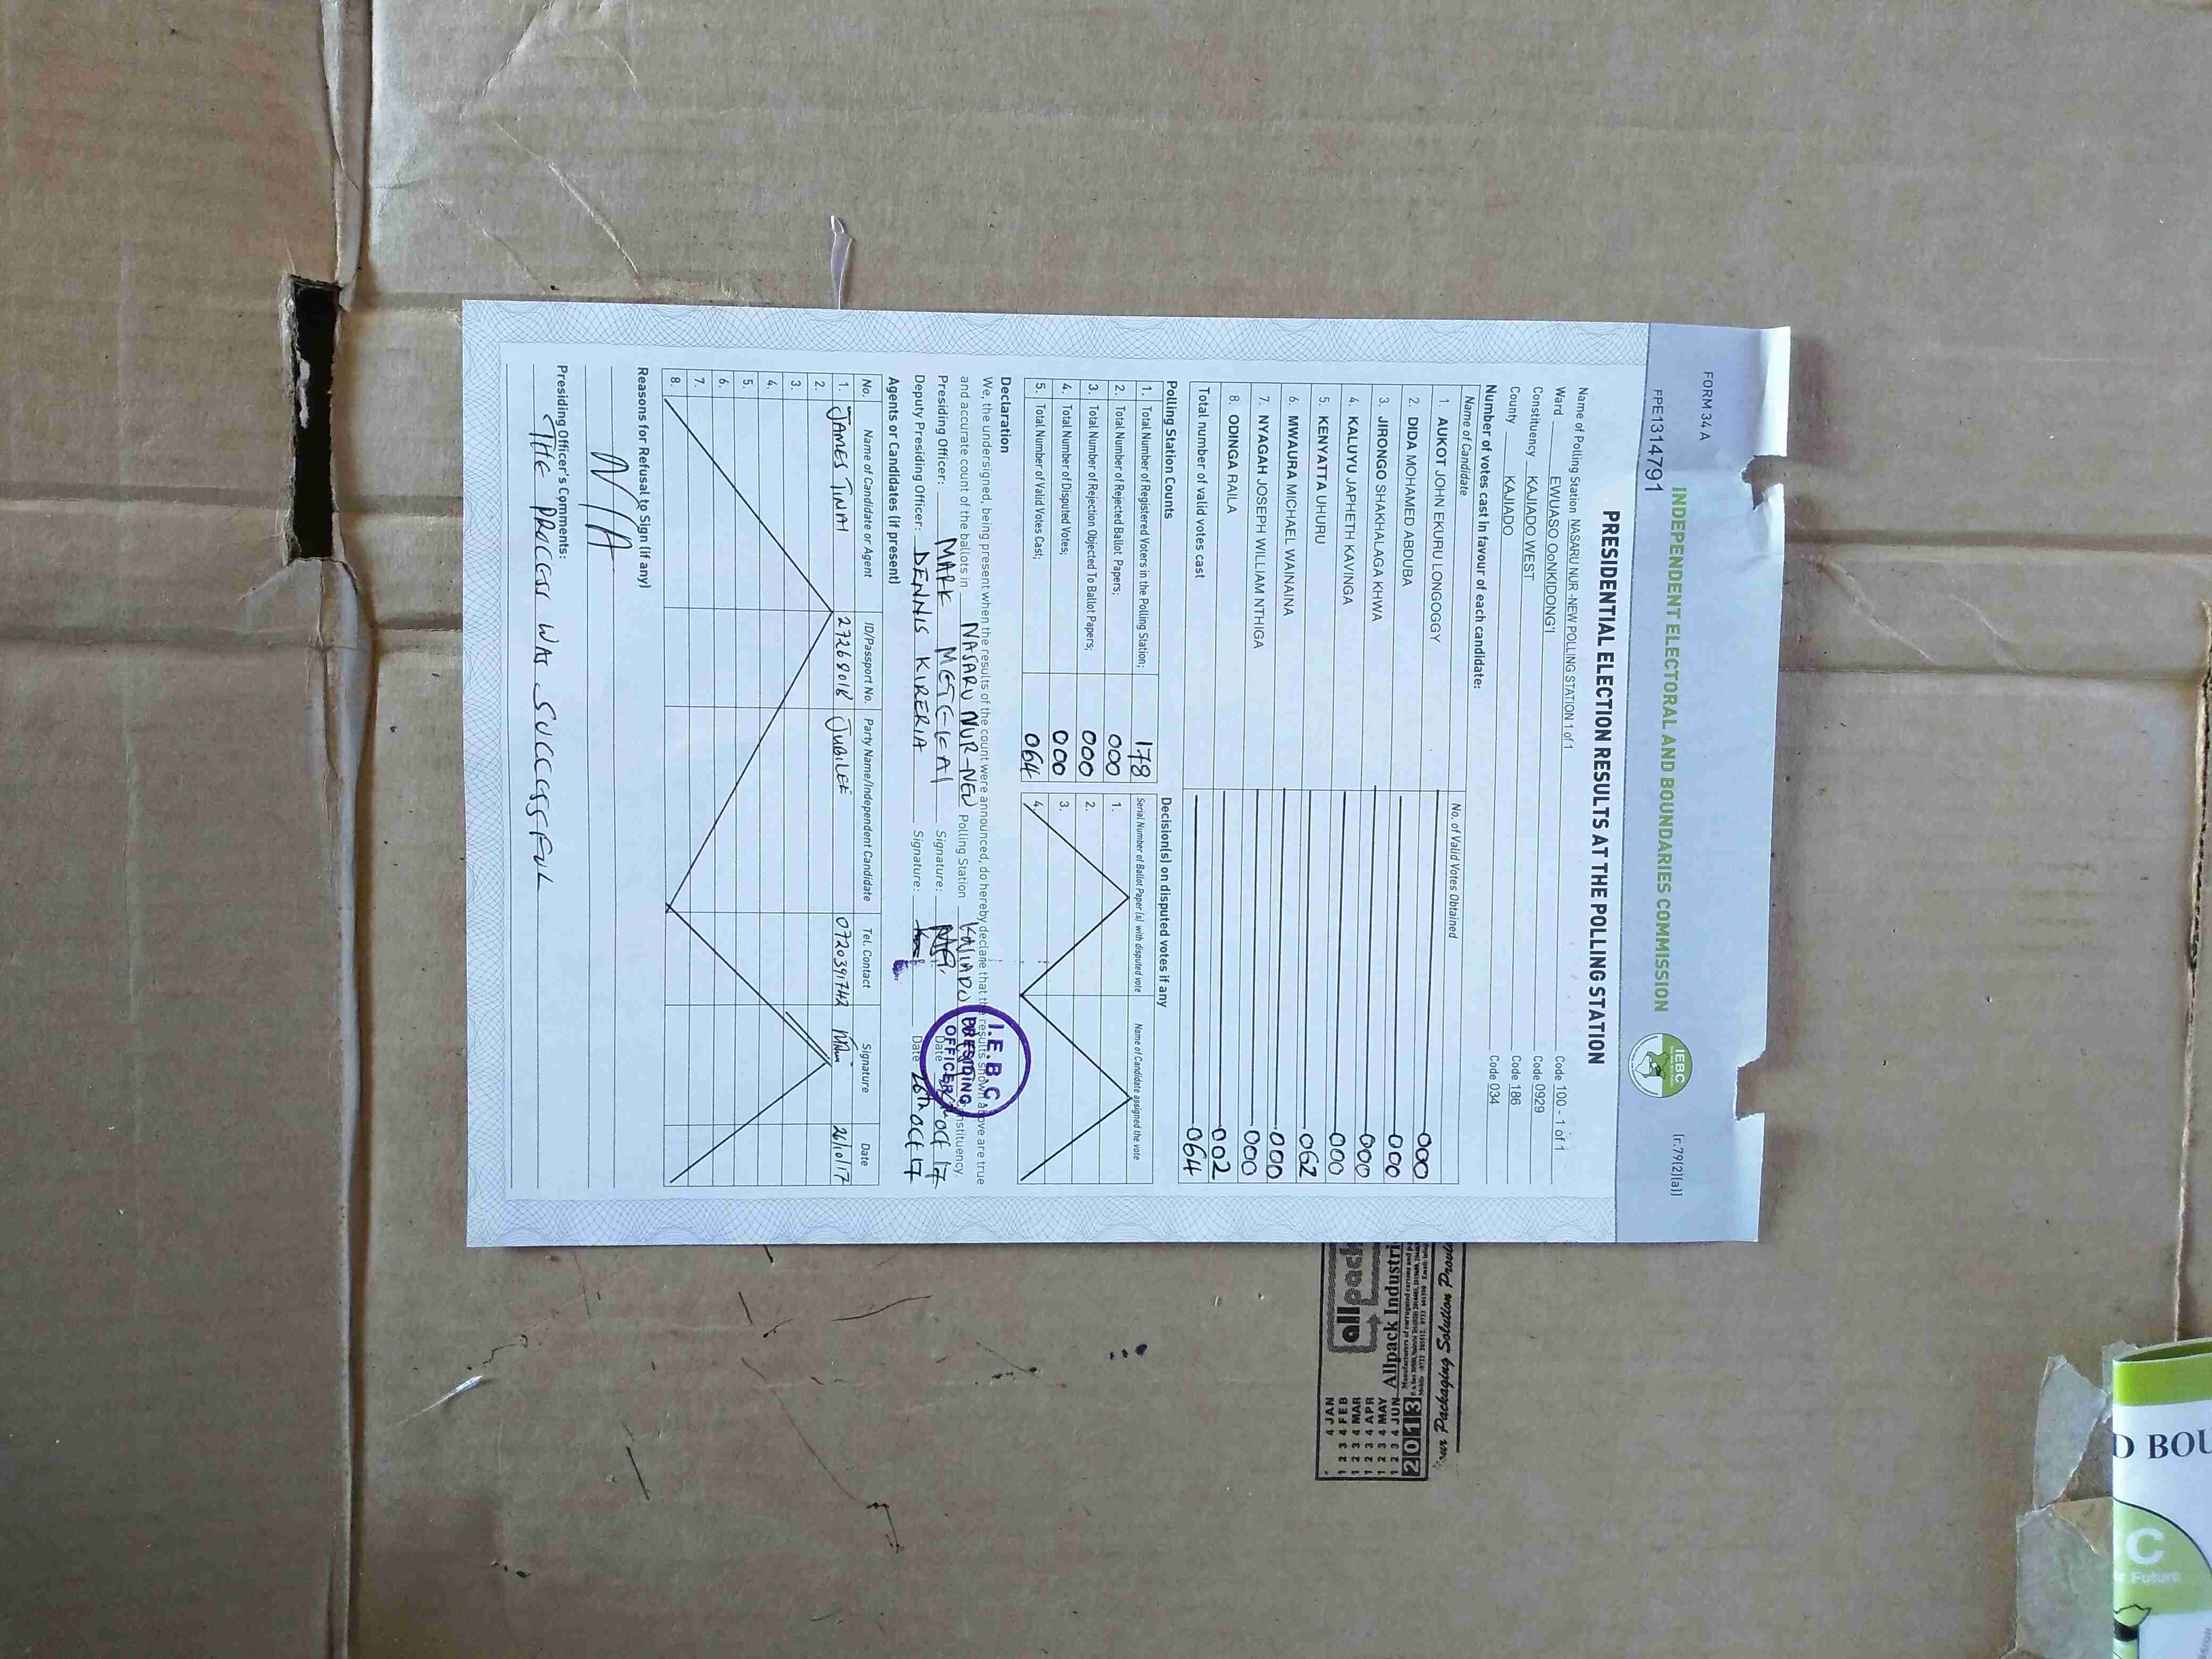 FORM 34 A
(r.79(2)(a))
FPE1314791
INDEPENDENT ELECTORAL AND BOUNDARIES COMMISSION
IEBC
PRESIDENTIAL ELECTION RESULTS AT THE POLLING STATION
Name of Polling Station NASARU NUR -NEW POLLING STATION 1 of 1
Ward EWUASO OoNKIDONG'I Code 100 - 1 of 1
Constituency KAJIADO WEST Code 0929
County KAJIADO Code 186
Code 034
Number of votes cast in favour of each candidate:
Name of Candidate No. of Valid Votes Obtained
1. AUKOT JOHN EKURU LONGOGGY 000
2. DIDA MOHAMED ABDUBA 000
3. JIRONGO SHAKHALAGA KHWA 000
4. KALUYU JAPHETH KAVINGA 000
5. KENYATTA UHURU 062
6. MWAURA MICHAEL WAINAINA 000
7. NYAGAH JOSEPH WILLIAM NTHIGA 000
8. ODINGA RAILA 002
Total number of valid votes cast 064
Polling Station Counts
1. Total Number of Registered Voters in the Polling Station; 178
2. Total Number of Rejected Ballot Papers; 000
3. Total Number of Rejection Objected To Ballot Papers; 000
4. Total Number of Disputed Votes; 000
5. Total Number of Valid Votes Cast; 064
Decision(s) on disputed votes if any
Serial Number of Ballot Paper (s) with disputed vote Name of Candidate assigned the vote
1.
2.
3.
4.
Declaration
We, the undersigned, being present when the results of the count were announced, do hereby declare that the results shown above are true
and accurate count of the ballots in NASARU NUR-NEW Polling Station KAJIADO Constituency.
Presiding Officer: MARK Signature: Date Oct 17
Deputy Presiding Officer: DENNIS KIRERIA Signature: Date 26th Oct 17
I.E.B.C
PRESIDING
OFFICER
Agents or Candidates (if present)
No. Name of Candidate or Agent ID/Passport No. Party Name/Independent Candidate Tel. Contact Signature Date
1. JAMES TINAI 27268018 JUBILEE 0720391742 26/10/17
2.
3.
4.
5.
6.
7.
8.
Reasons for Refusal to Sign (if any)
N/A
Presiding Officer's Comments:
THE PROCESS WAS SUCCESSFUL
Allpack Industri
2013
1 2 3 4 JUN
1 2 3 4 MAY
1 2 3 4 APR
1 2 3 4 MAR
1 2 3 4 FEB
4 JAN
D BOU
C
r Future